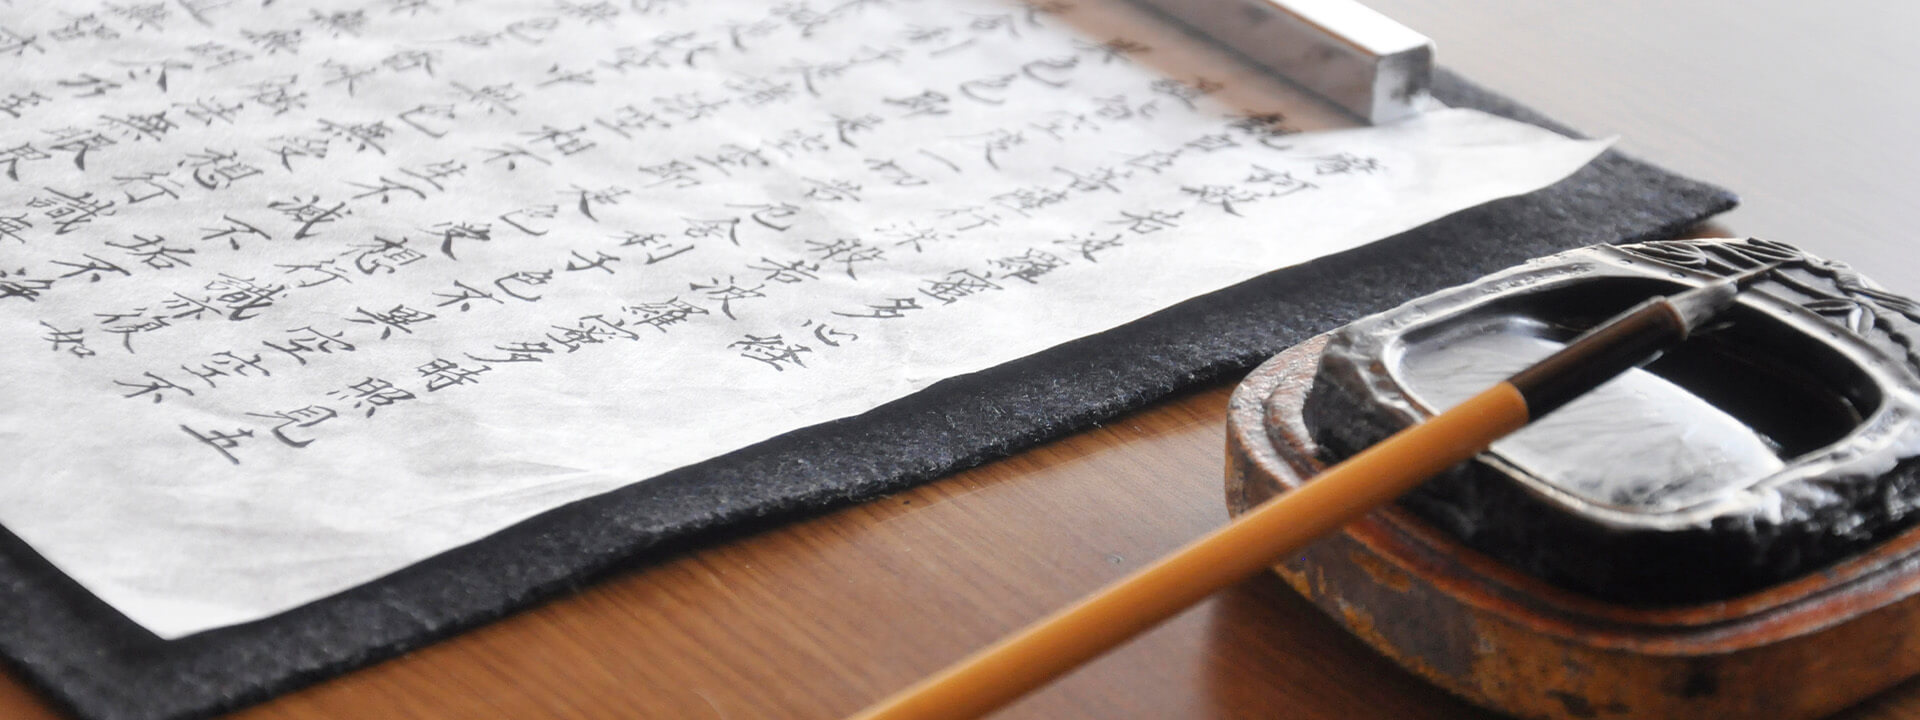 摩訶般若波羅蜜多心經
觀自在菩薩行深般若波羅蜜多時照見五
皆空度一切苦厄舍利子色不異空空不
異色色即是空空即是色受想行識亦復如
舍利子是諸法空相不生不滅不垢不淨
減是故空中無色無受想行識無
香味觸法無眼界
無明盡乃至